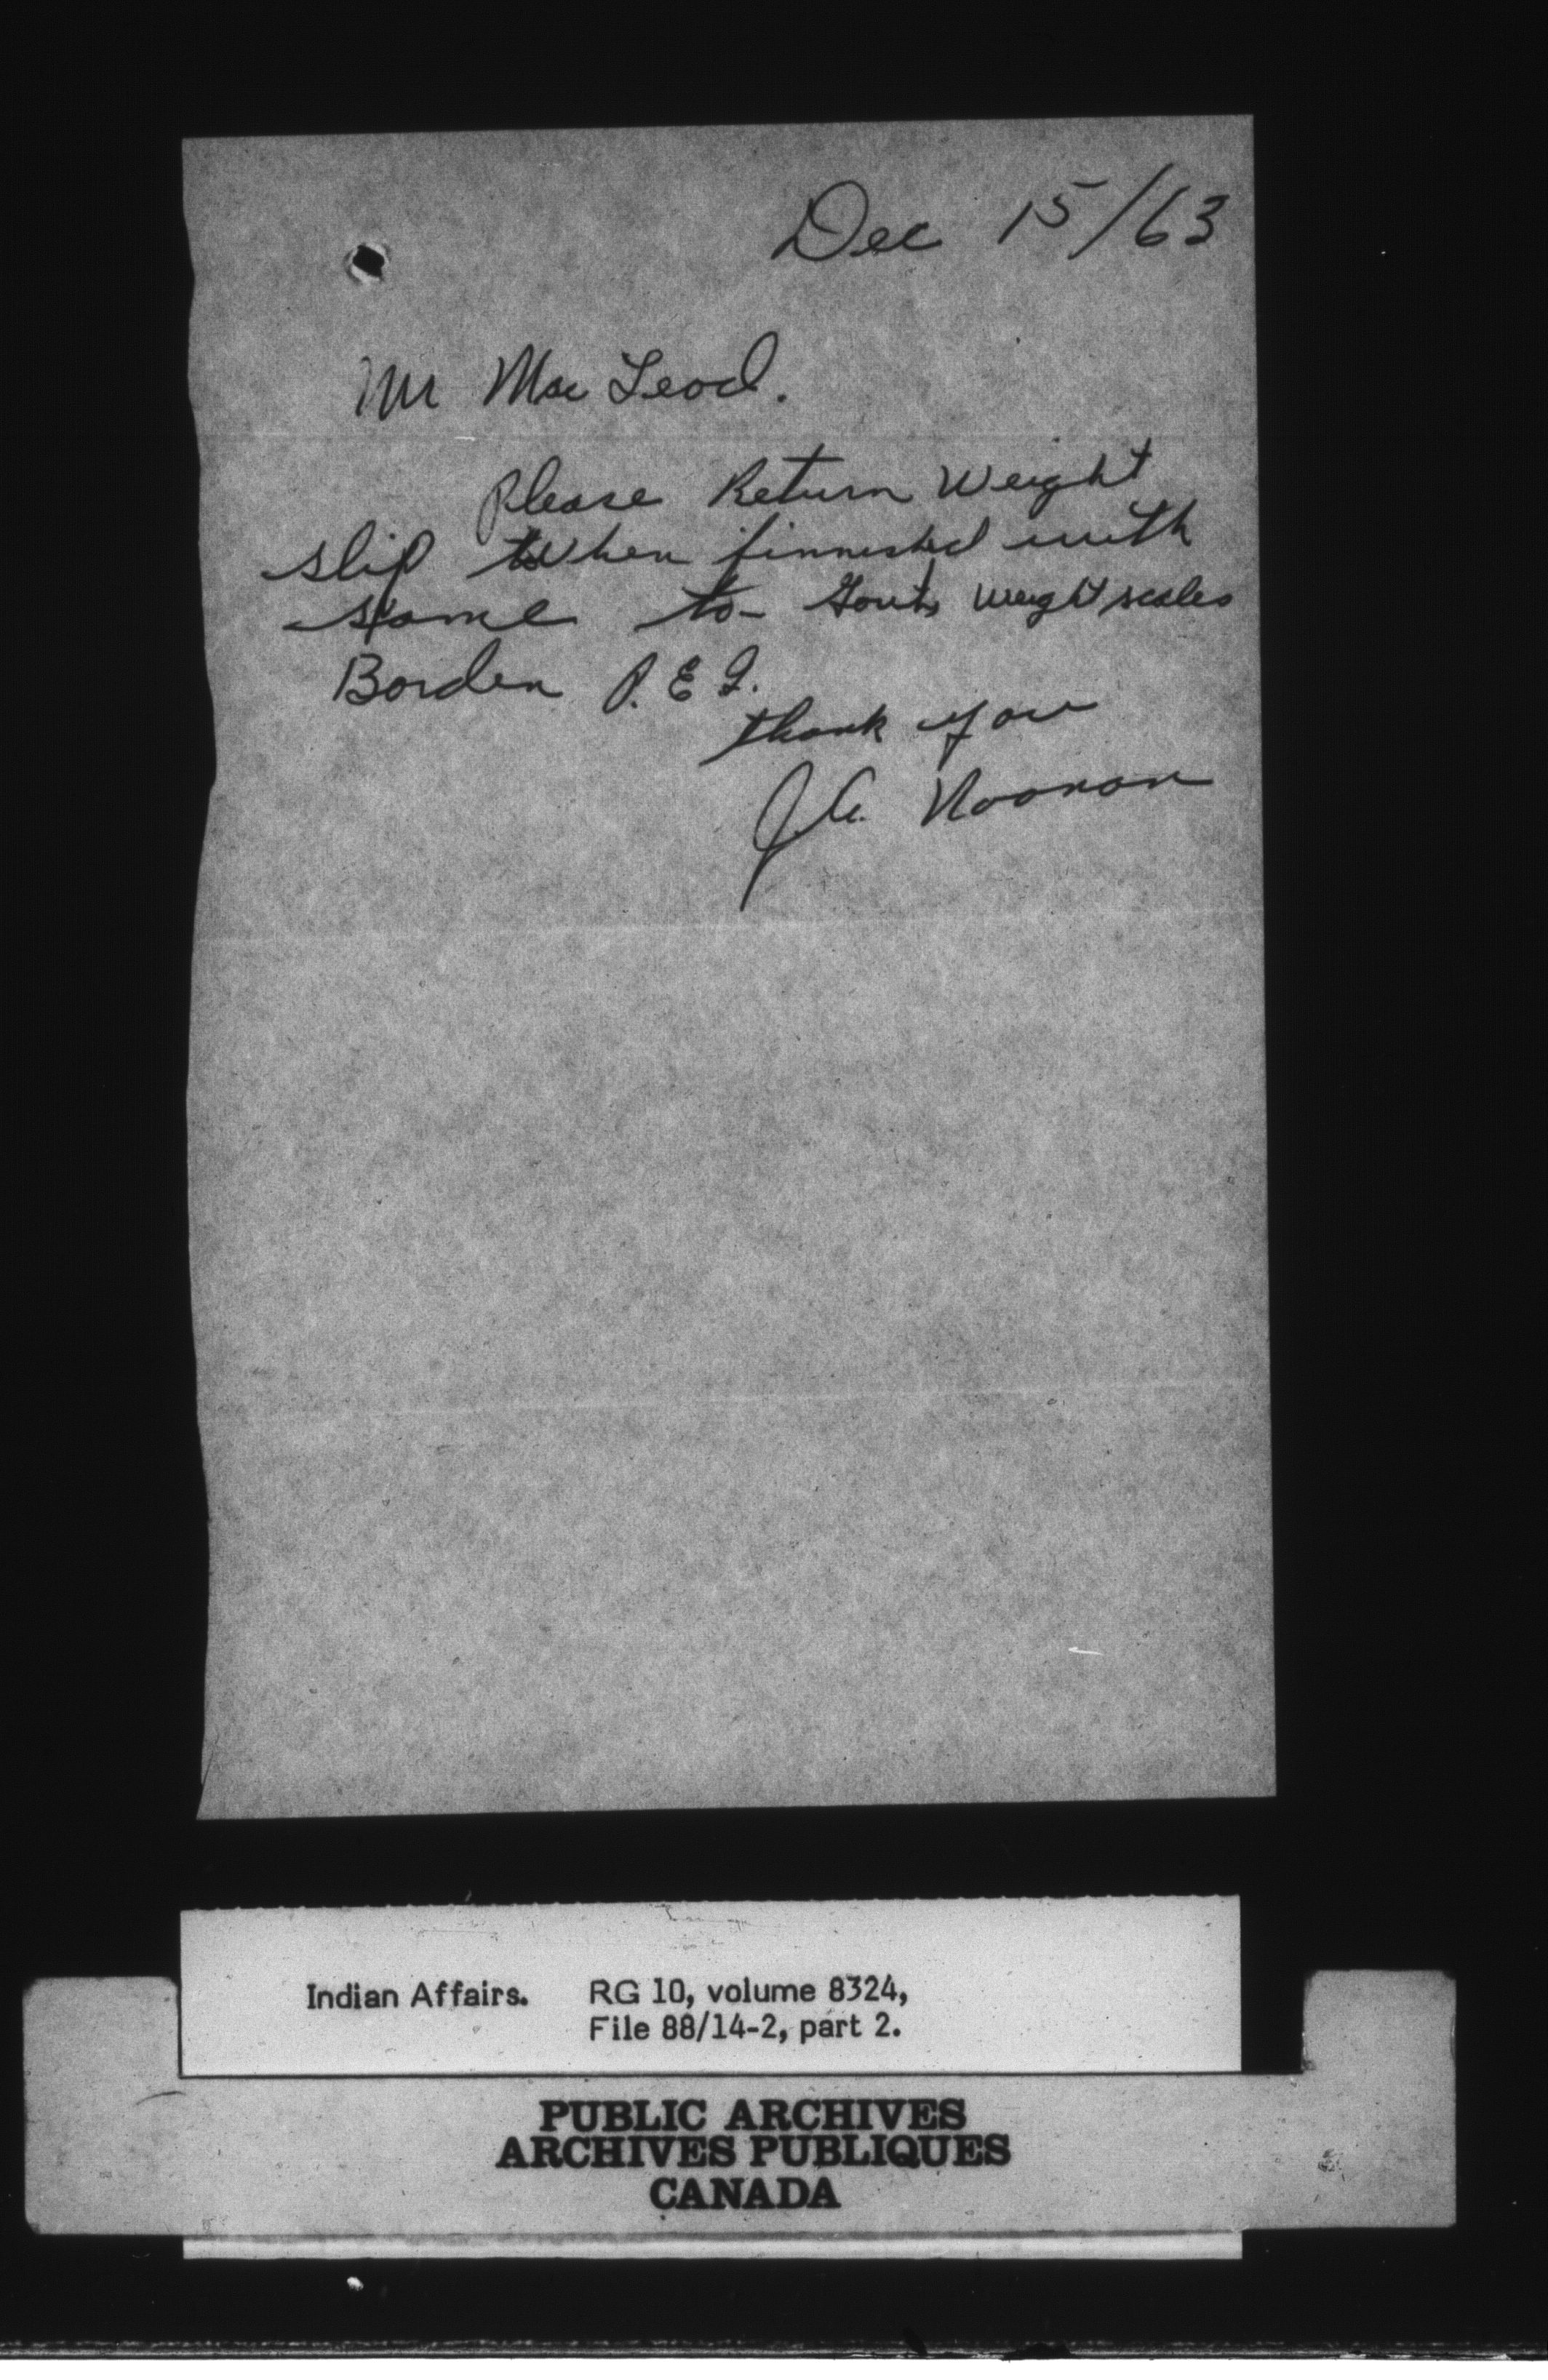 Dec 15/63
Mr Mac Leod.
Please Return Weight
slip When finnished with
same to Govt, weight scales
Borden P. E I.
thank you
J.A. Noonan
Indian Affairs. RG 10, volume 8324,
File 88/14-2, part 2.
PUBLIC ARCHIVES
ARCHIVES PUBLIQUES
CANADA